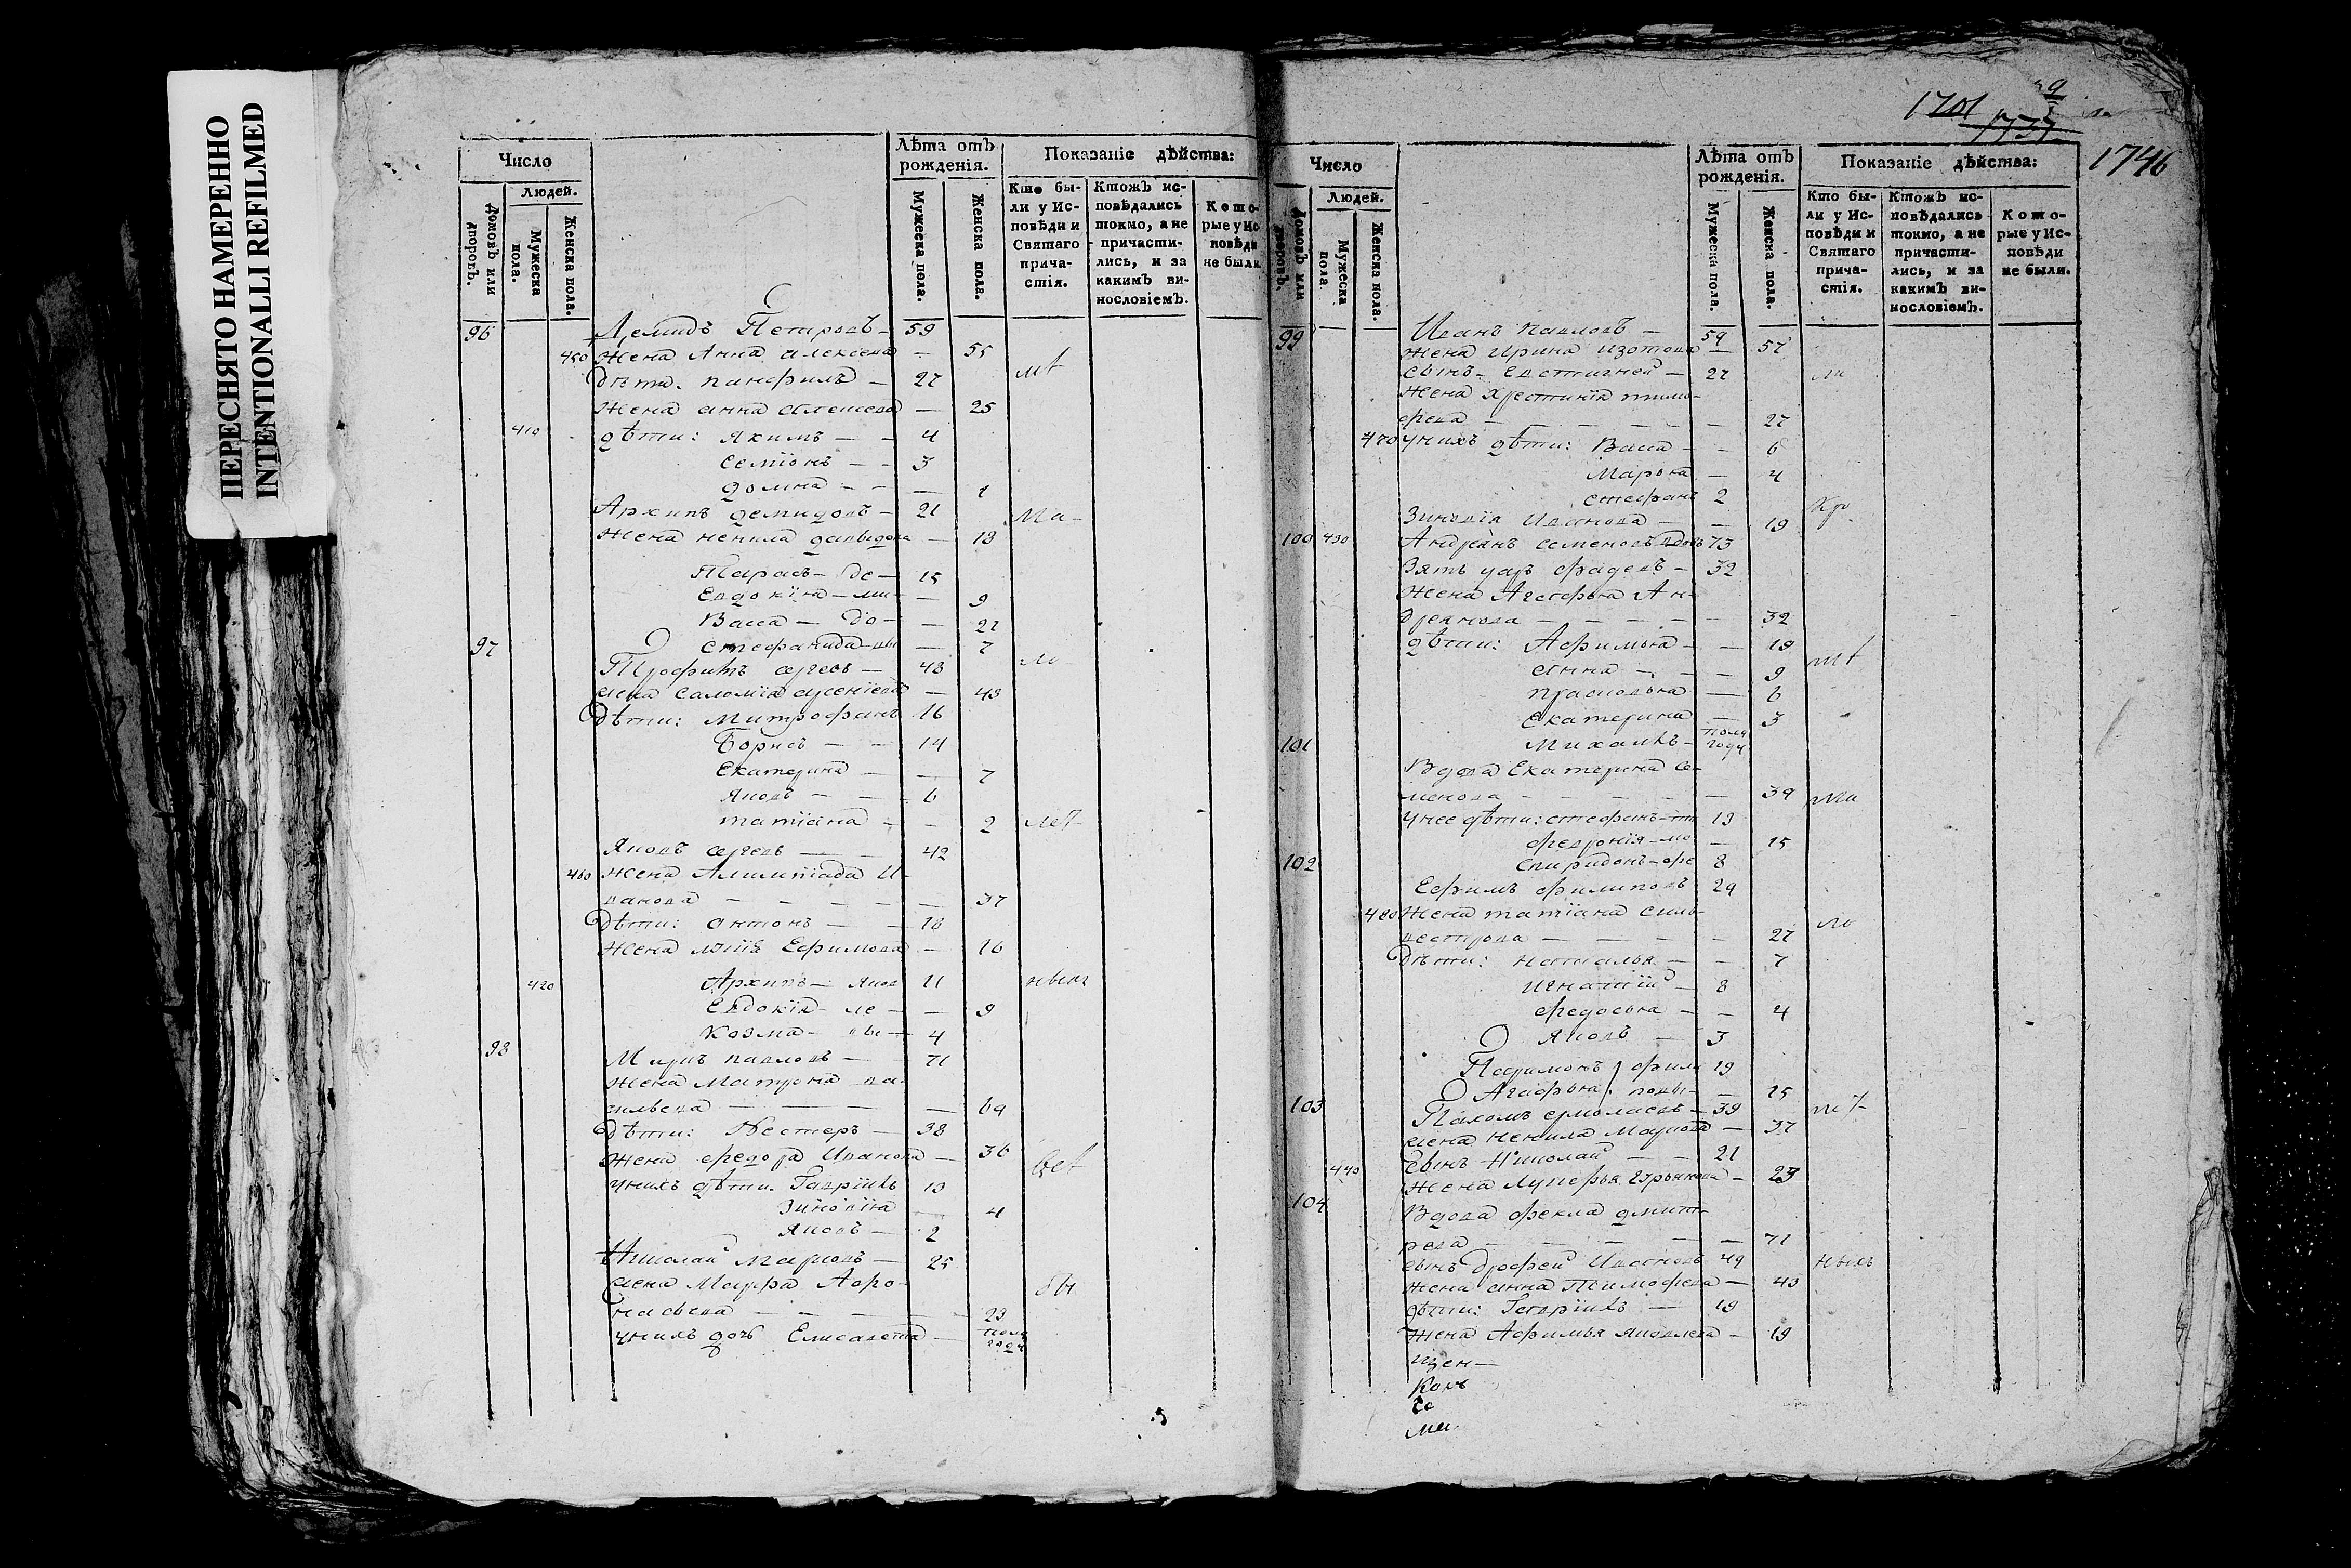 ПЕРЕСНЯТО НАМЕРЕННО
INTENTIONALLI REFILMED
Число
Людей.
Домовъ или дворовъ.
Мужеска пола.
Женска пола.
Лѣта отъ рожденія.
Мужеска пола.
Женска пола.
Показаніе дѣйства:
Кто были у Исповѣди и Святаго причастія.
Ктожъ исповѣдались токмо, а не причастились, и за какимъ винословіемъ.
Которые у Исповѣди не были.
96 Демидъ Петровъ - 59
450 Жена Анна Алексеева - 55
дѣти. панфилъ - 27
Жена анна - 25
410 дѣти: якимъ - - 4
семіонъ - - 3
домна - - - 1
Архипъ демидовъ - 21
Жена ненила давыдова - 18
Тарасъ - де - 15
Евдокіна - ми - - 9
Васса - до - - 21
97 стефанида - - 7
Трофимъ - 43
жена саломіа - 43
Дѣти: Митрофанъ 16
Борисъ - - 14
Екатерина - - 7
Яковъ - - 6
татіана - - 2
Яковъ - 42
460 Жена Алимпіада И-
ванова - - - - - 37
Дѣти: антонъ - - 18
Жена Ефимова - 16
420 Архипъ - Яков 11
Евдокіа - ле - - 9
Козма - 4
98 павловъ - 71
Жена Матрона ва-
сильева - - - - 69
Дѣти: Нестеръ - 38
Жена Иванова - 36
унихъ дѣти. Гавріилъ 13
Зиновіа - 4
Яковъ - 2
Николай Марковъ - 25
жена Мавра Афо-
насьева - - - - - 23
унихъ дочь Елисавета - пол года
1701
1737
1746
Число
Людей.
Домовъ или дворовъ.
Мужеска пола.
Женска пола.
Лѣта отъ рожденія.
Мужеска пола.
Женска пола.
Показаніе дѣйства:
Кто были у Исповѣди и Святаго причастія.
Ктожъ исповѣдались токмо, а не причастились, и за какимъ винословіемъ.
Которые у Исповѣди не были.
99 Иванъ павловъ - 59
Жена Ирина изотова - 57
сынъ - Евстигней - 27
Жена Хрестинія тимо-
феева - - - - - 27
470 унихъ дѣти: Васса - - 6
Марька - 4
стефанъ 2
Зиновіа Иванова - - 19
100 430 Андреанъ семеновъ вдовъ 73
Зять фадеевъ - 32
Жена Агафья Ан-
дреянова - - - - - 32
дѣти: Афимька - - 19
анна - - - 9
прасковья - - 6
Екатерина - 3
101 Михаилъ - пол года
Вдова Екатерина се-
менова - - - - - 39
унее дѣти: стефанъ 19
федронія - мо - 15
102 спиридонъ - фе 8
Ефимъ филиповъ 29
480 Жена татіана силь-
вестрова - - - - 27
Дѣти: наталья - - 7
игнатій - 8
федосья - - 4
яковъ - 3
Парфимонъ фили 19
Агафья - 15
103 Пахомъ ермолаевъ - 39
жена ненила Маркова - 37
сынъ Николай - - 21
440 Жена Лукерья - 23
104 Вдова фекла дмит-
реева - - - - - 71
сынъ Дрофей Ивановъ 49
Жена анна Тимофеева - 43
дѣти: Гавріилъ - 19
Жена Афимья яковлева - 19
щен-
Конъ
Со
ма.